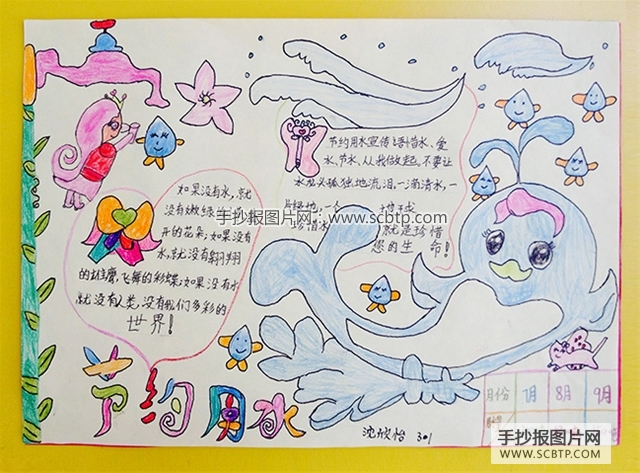 节约用水宣传语:惜水、爱
水、节水,从我做起。不要让
水龙头孤独地流泪,一滴清水,一
就是珍惜
您的生 命!
如果没有水,就
开的花朵;如果没有
水,就没有翱翔
的雄鹰,飞舞的彩蝶;如果没有水
就没有人类,没有我们多彩的
世界!
手抄报图片网:www.scbtp.com
节约用水
沈欣怡 301
月份 7月 8月 9月
手抄报图片网
WWW.SCBTP.COM